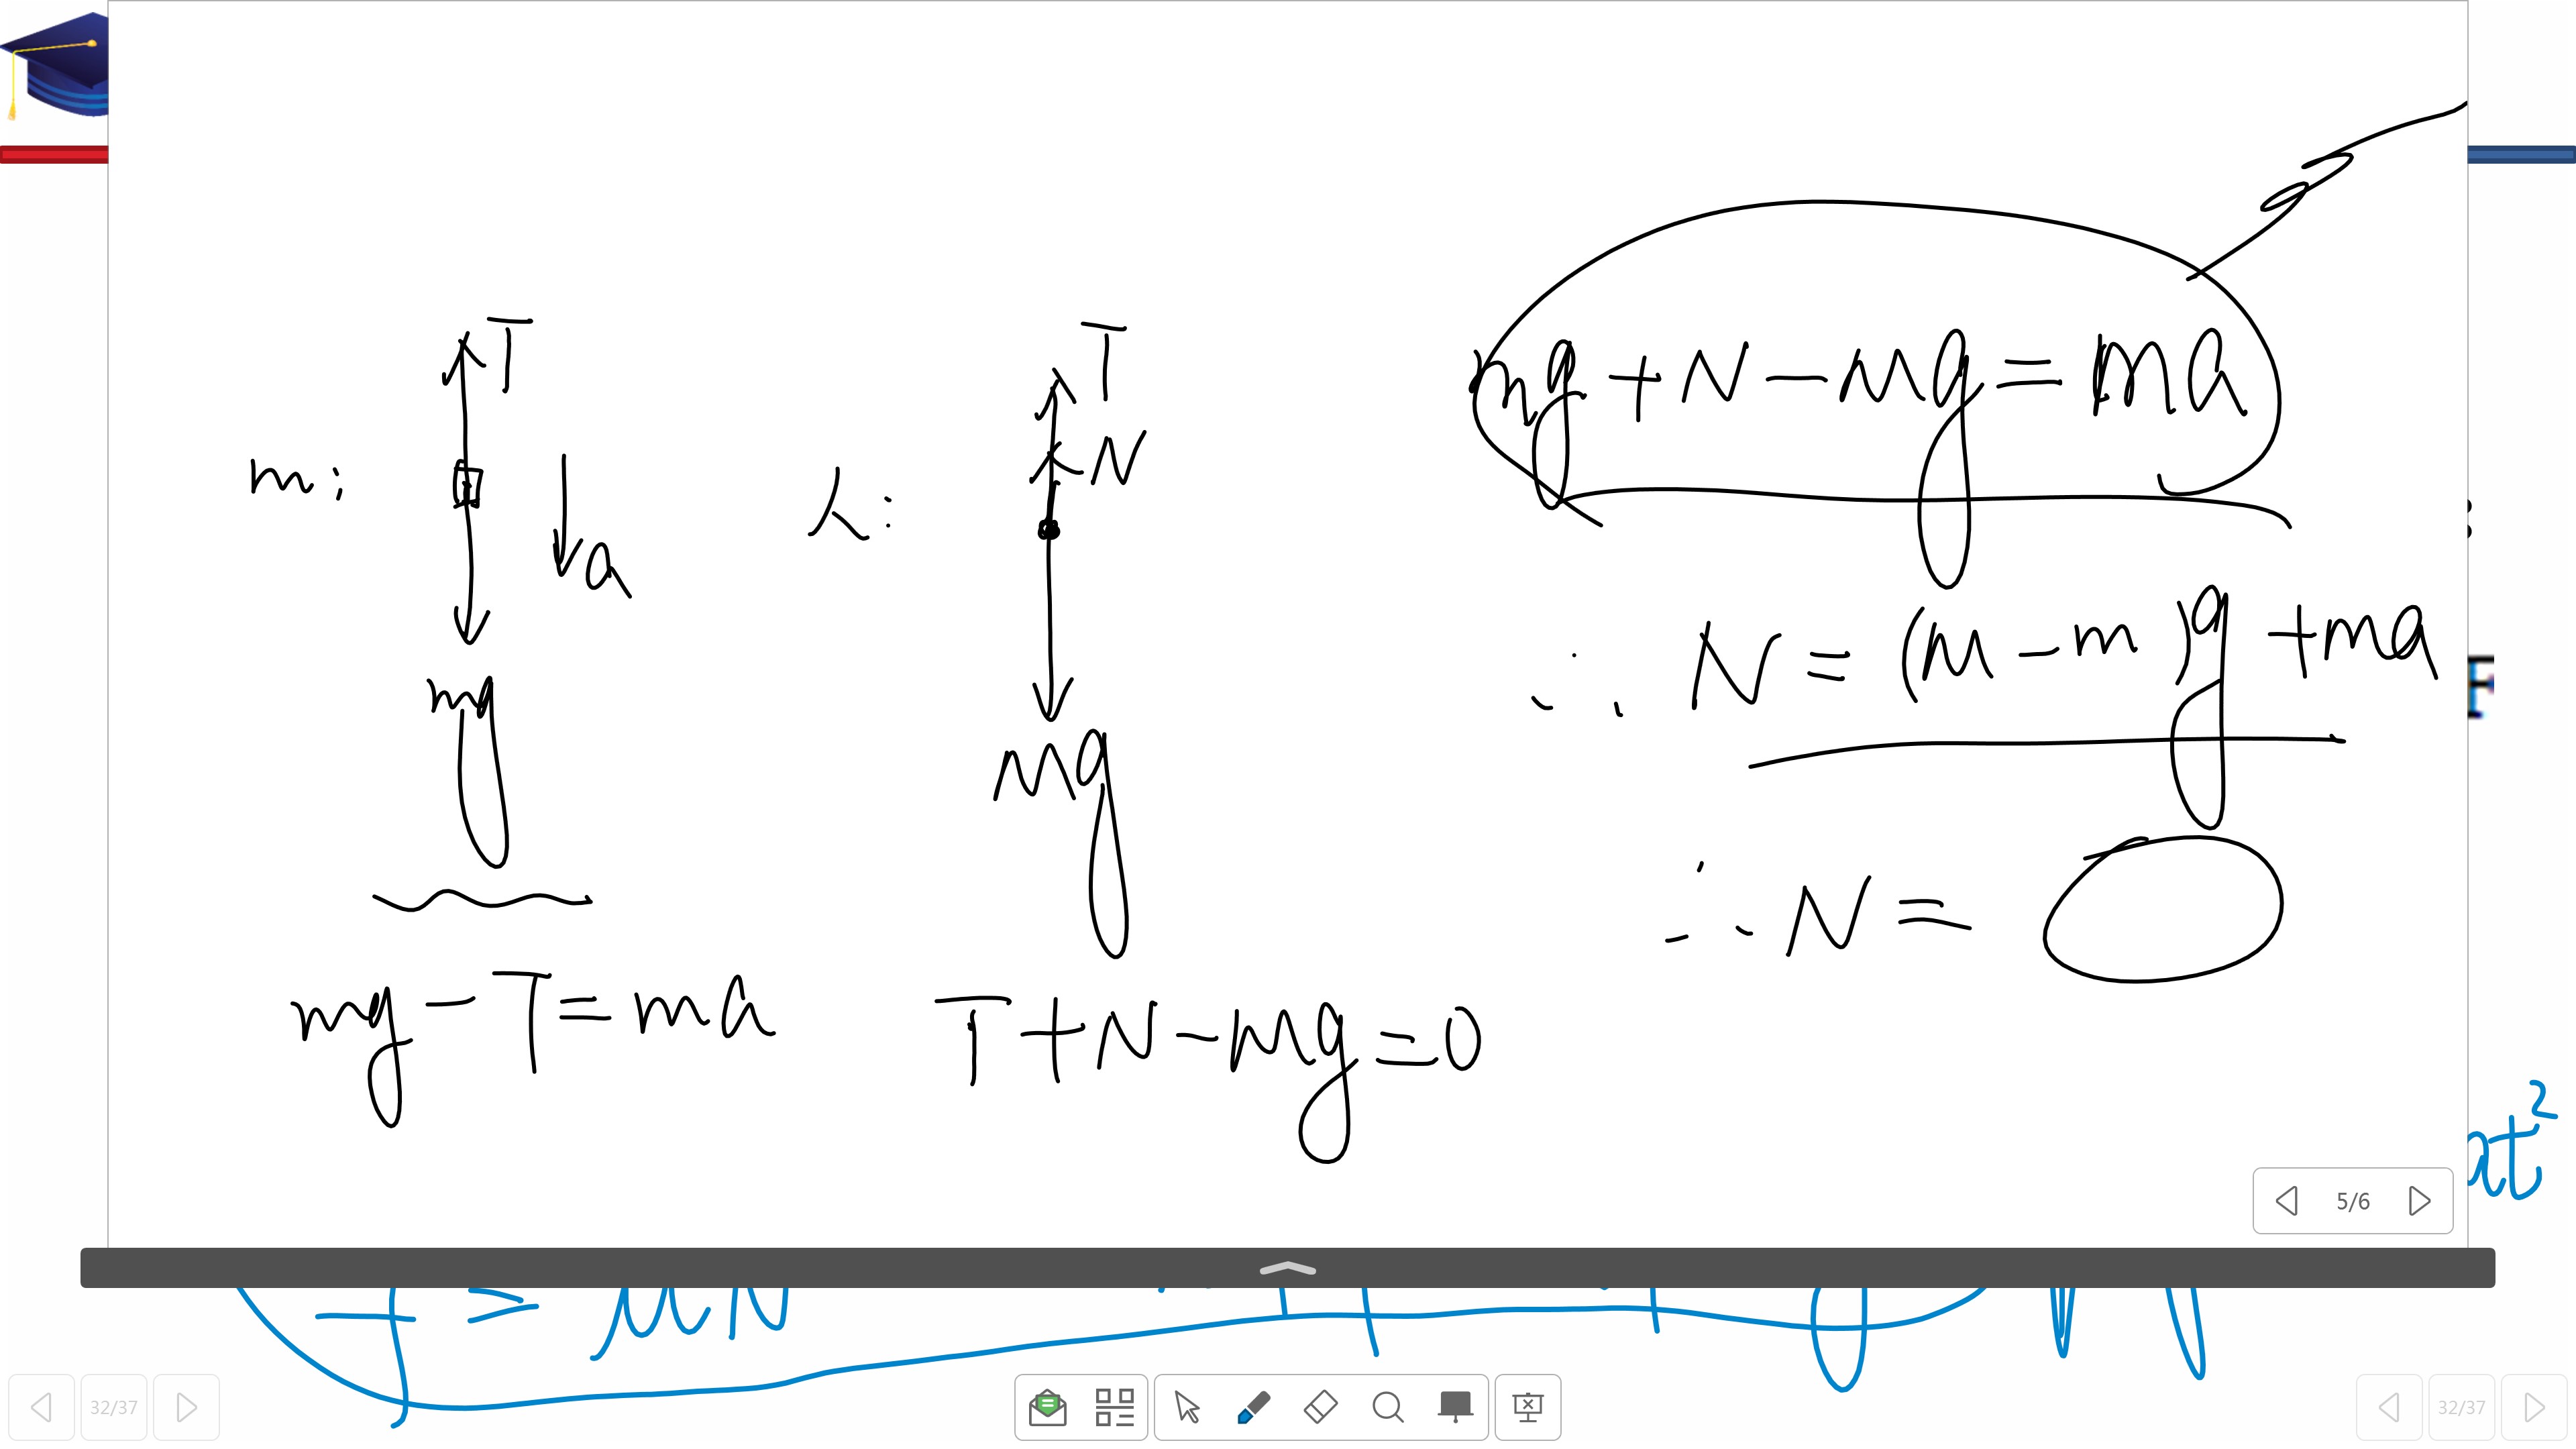 T
m:
a
mg
mg-T=ma
T
N
人:
Mg
T+N-Mg=0
mg+N-Mg=ma
∴ N=(M-m)g+ma
∴ N=
F
at²
5/6
f=μN
32/37
32/37